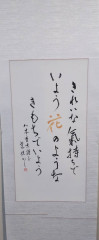 きれいな気持ちで
いよう花のような
きもちでいよう